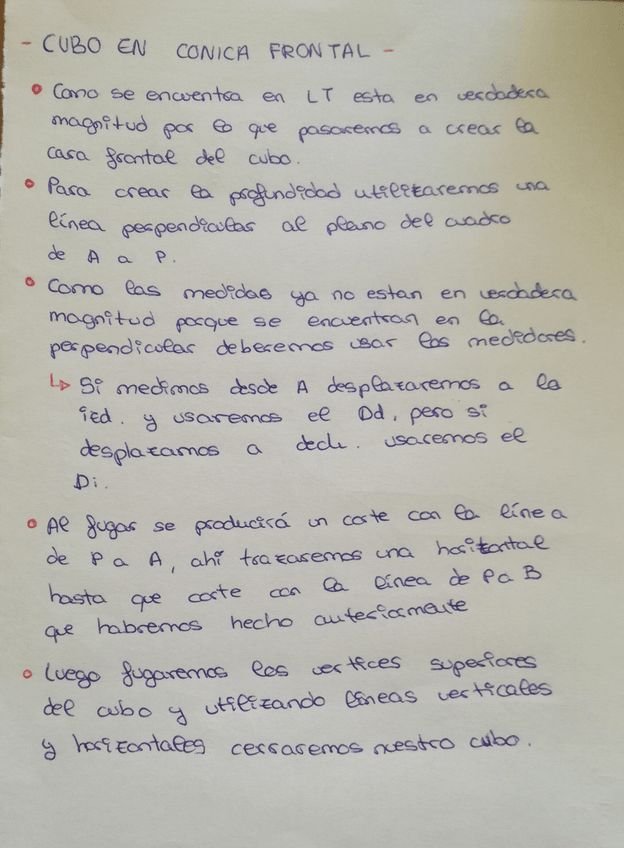 - CUBO EN CONICA FRONTAL -
• Como se encuentra en LT esta en verdadera
magnitud por lo que pasaremos a crear la
cara frontal del cubo.
• Para crear la profundidad utilizaremos una
línea perpendicular al plano del cuadro
de A a P.
• Como las medidas ya no estan en verdadera
magnitud porque se encuentran en la
perpendicular deberemos usar los medidores.
↳ Si medimos desde A desplazaremos a la
izd. y usaremos el Dd, pero si
desplazamos a dech. usaremos el
Di.
• Al fugar se producirá un corte con la línea
de P a A, ahí trazaremos una horizontal
hasta que corte con la línea de P a B
que habremos hecho anteriormente
• Luego fugaremos los vertices superiores
del cubo y utilizando líneas verticales
y horizontales cerraremos nuestro cubo.